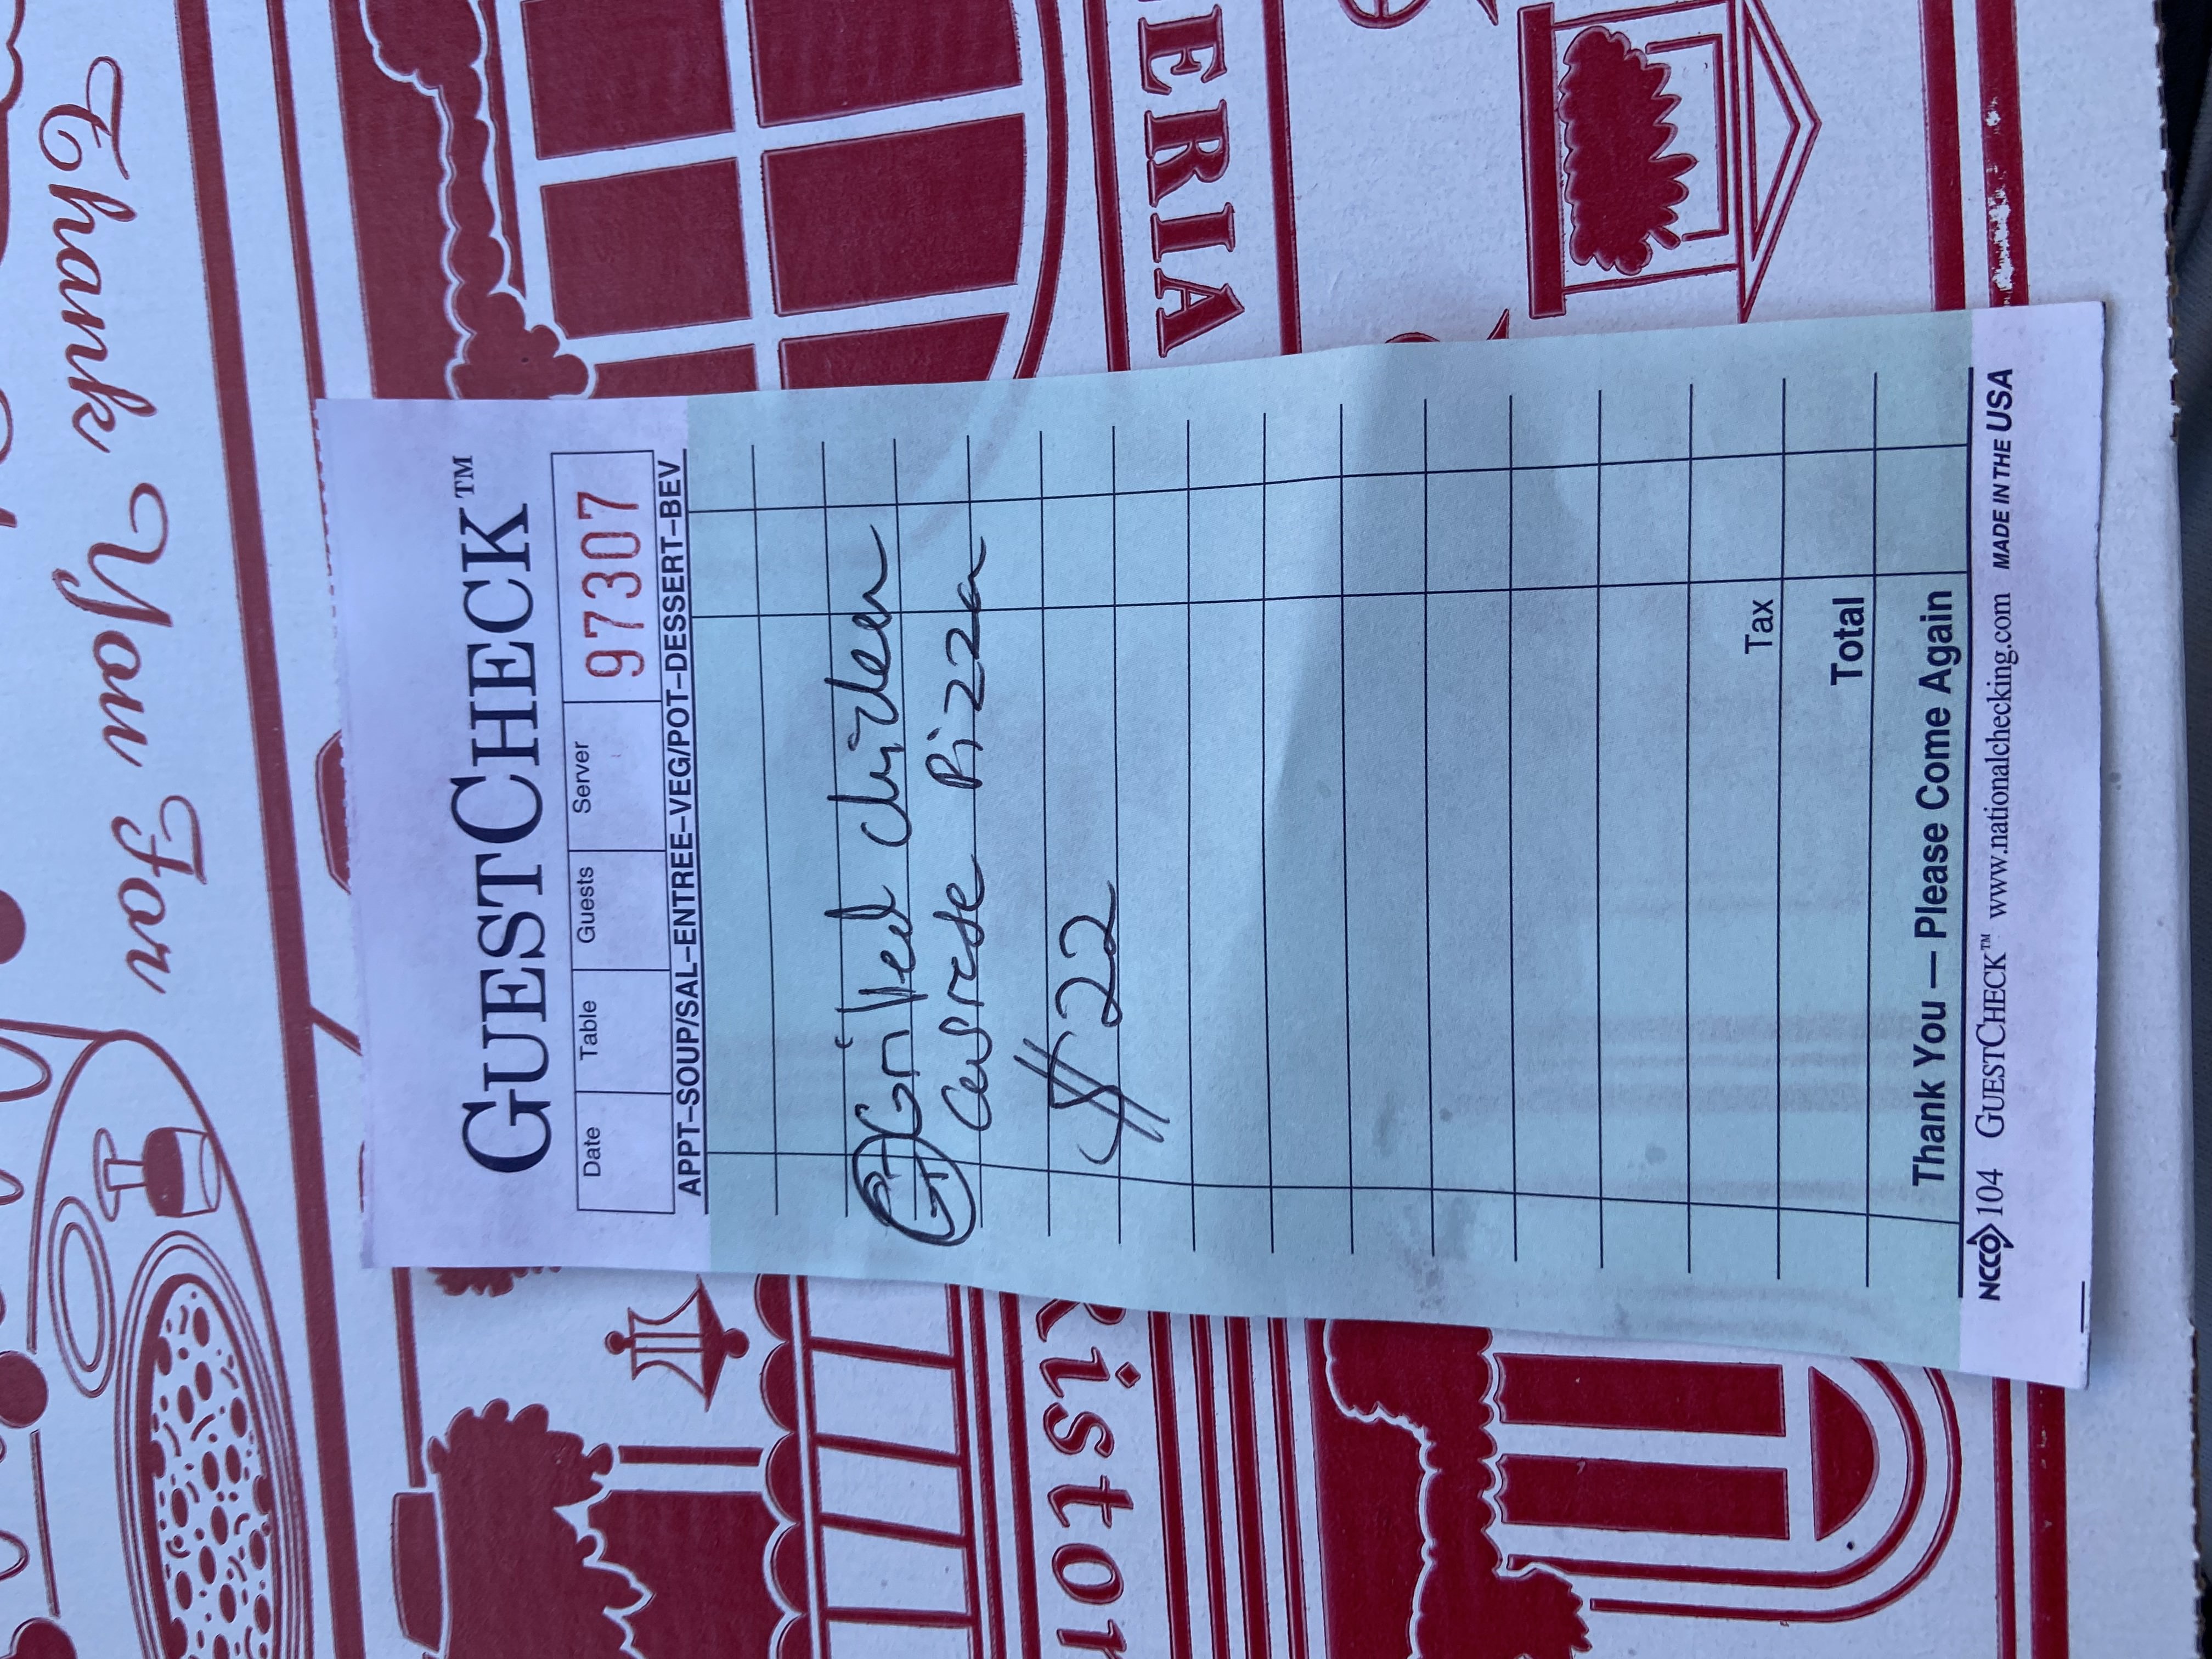 Thank You For
GUESTCHECK™
Date Table Guests Server 97307
APPT–SOUP/SAL–ENTREE–VEG/POT–DESSERT–BEV
Grilled chicken
Pizza
$22
Tax
Total
Thank You — Please Come Again
NCCO 104 GUESTCHECK™ www.nationalchecking.com MADE IN THE USA
Ristor
ERIA